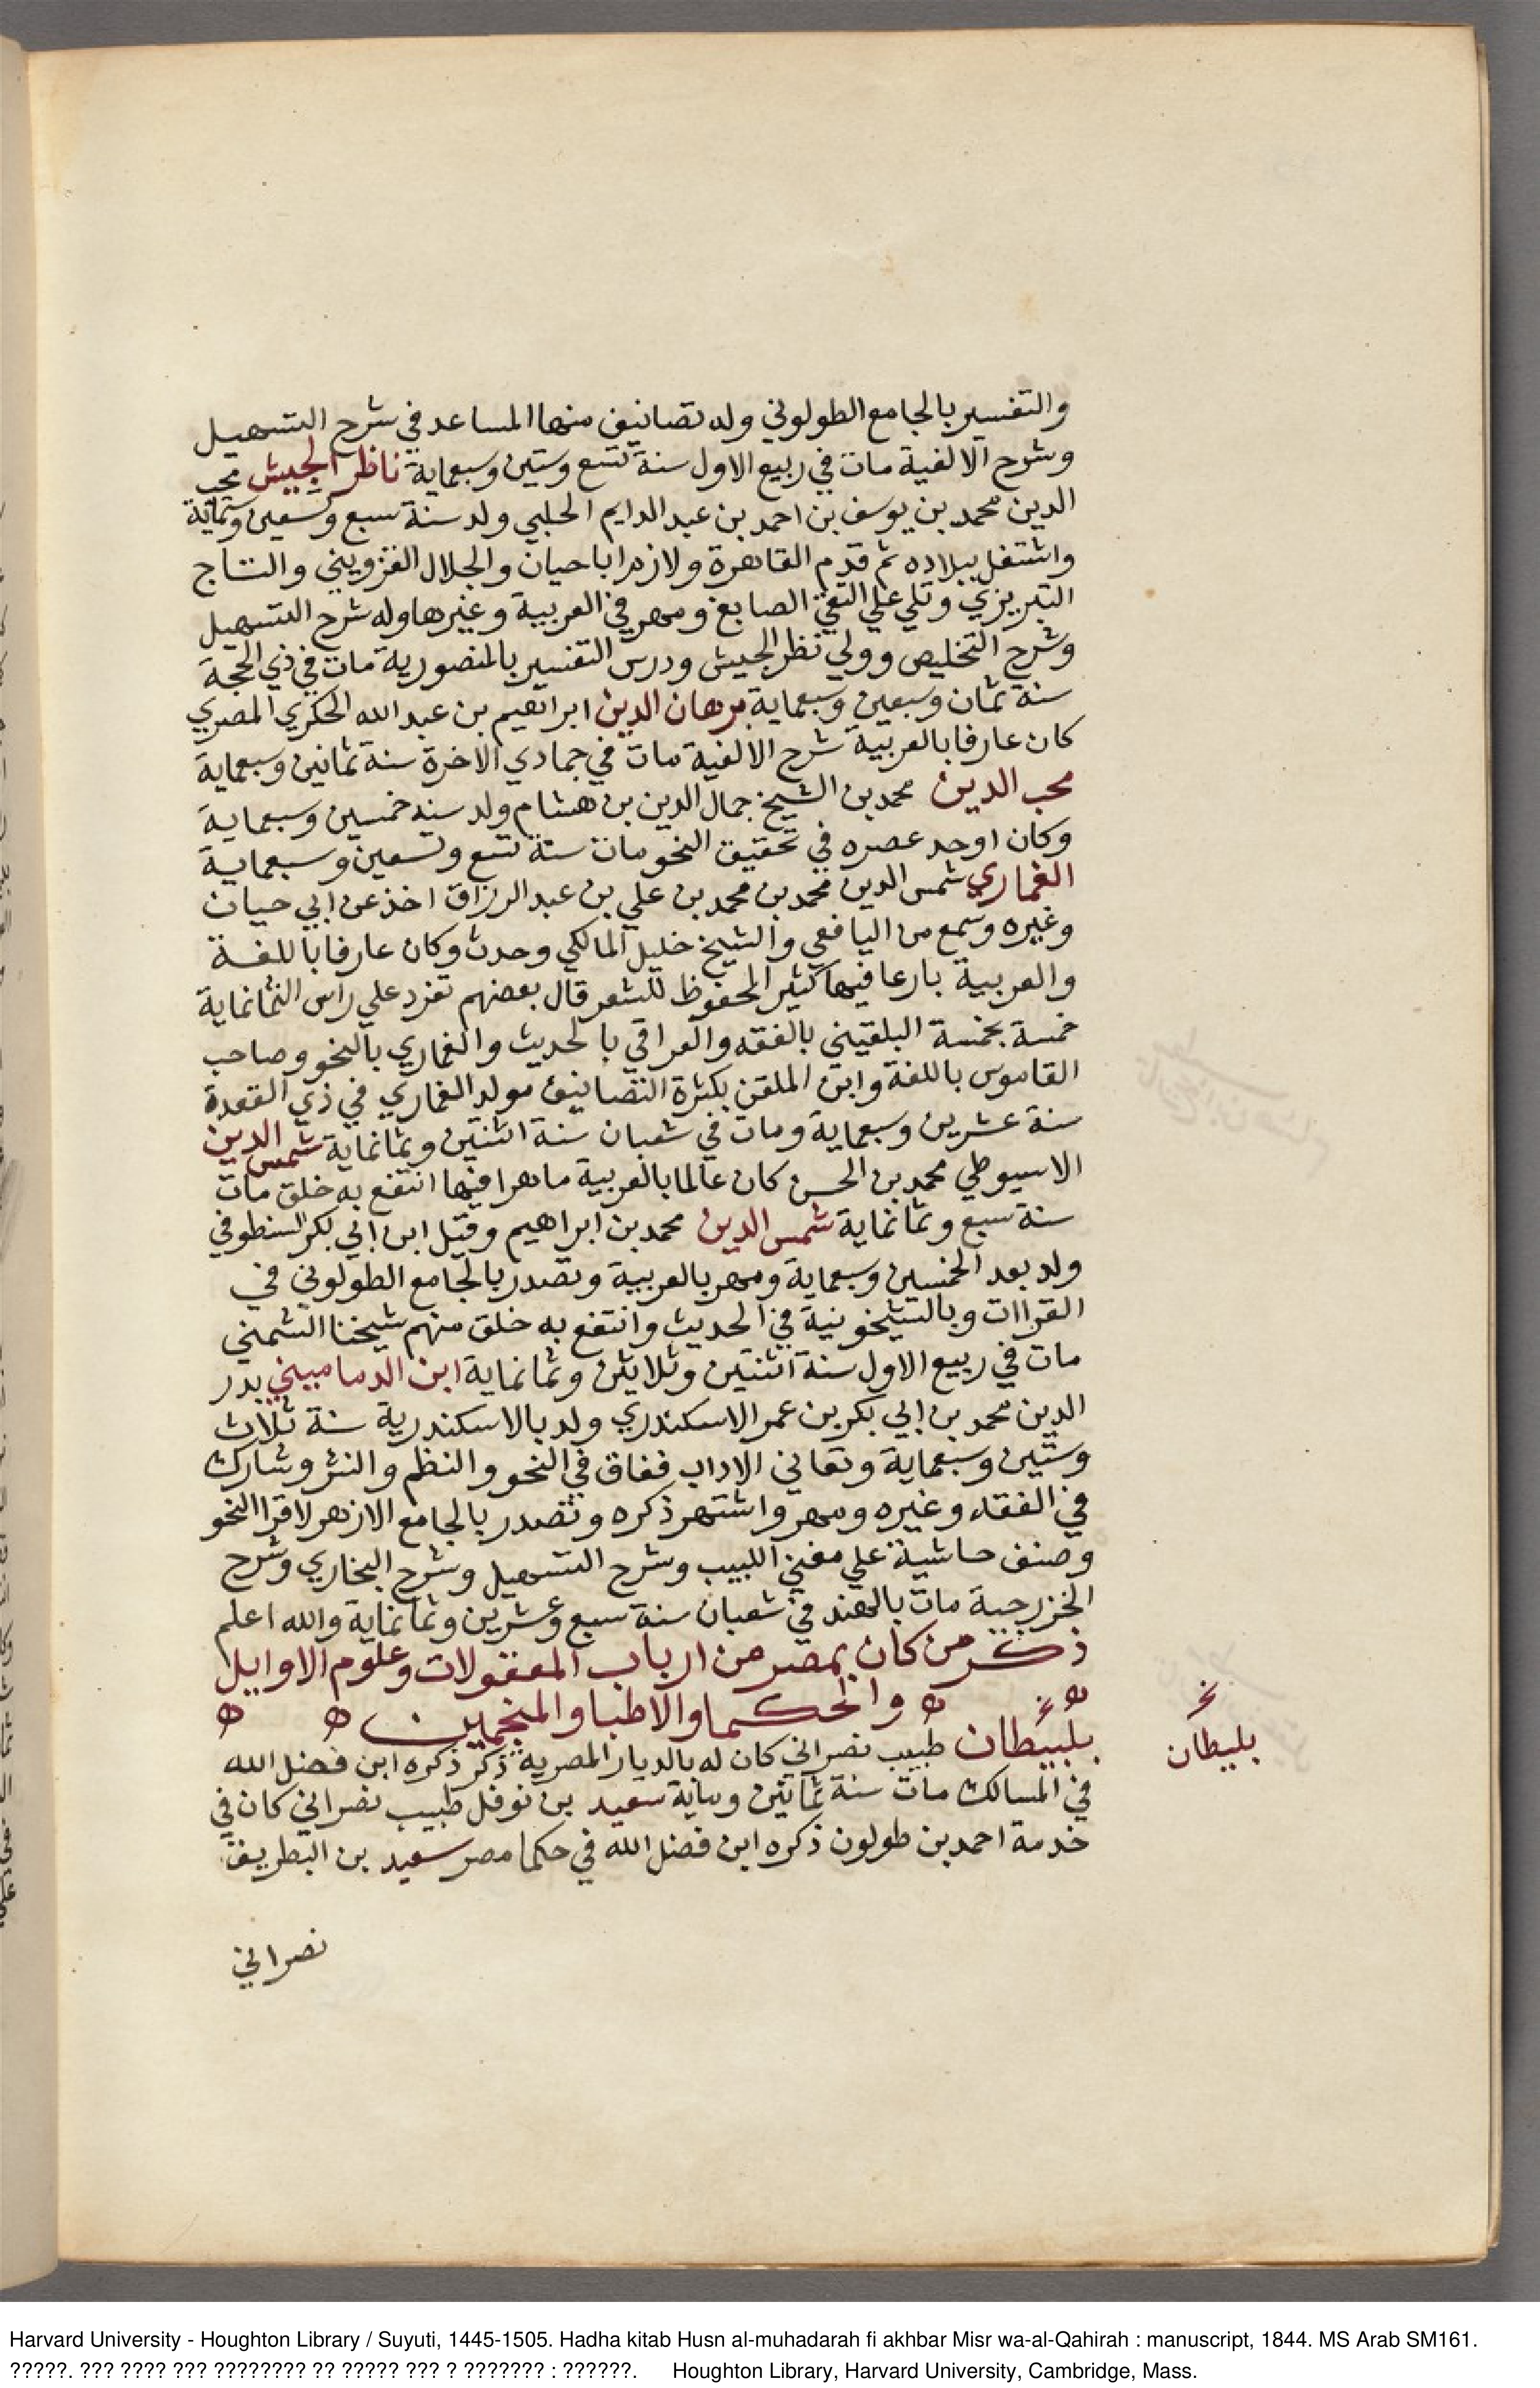 والتفسير بالجامع الطولوني وله تصانيف منها المساعد في شرح التسهيل
وشرح الالفية مات في ربيع الاول سنة تسع وستين وسبعماية ناظر الجيش محب
الدين محمد بن يوسف بن احمد بن عبد الدايم الحلبي ولد سنة سبع وتسعين وستماية
واشتغل ببلاده ثم قدم القاهرة ولازم ابا حيان والجلال القزويني والتاج
التبريزي وتلي علي التقي الصايغ ومهر في العربية وغيرها وله شرح التسهيل
وشرح التخليص وولي نظر الجيش ودرس التفسير بالمنصورية مات في ذي الحجة
سنة ثمان وسبعين وسبعماية برهان الدين ابراهيم بن عبد الله الحكري المصري
كان عارفا بالعربية شرح الالفية مات في جمادي الاخرة سنة ثمانين وسبعماية
محب الدين محمد بن الشيخ جمال الدين بن هشام ولد سنة خمسين وسبعماية
وكان اوحد عصره في تحقيق النحو مات سنة تسع وتسعين وسبعماية
الغماري شمس الدين محمد بن محمد بن علي بن عبد الرزاق اخذ عن ابي حيان
وغيره وسمع من اليافعي والشيخ خليل المالكي وحدث وكان عارفا باللغة
والعربية بارعا فيها كثير المحفوظ للشعر قال بعضهم تفرد علي راس الثمانماية
خمسة بخمسة البلقيني بالفقه والعراقي بالحديث والغماري بالنحو وصاحب
القاموس باللغة وابن الملقن بكثرة التصانيف مولد الغماري في ذي القعدة
سنة عشرين وسبعماية ومات في شعبان سنة اثنتين وثمانماية شمس الدين
الاسيوطي محمد بن الحسن كان عالما بالعربية ماهرا فيها انتفع به خلق مات
سنة سبع وثمانماية شمس الدين محمد بن ابراهيم وقيل ابن ابي بكر الشنطوفي
ولد بعد الخمسين وسبعماية ومهر بالعربية وتصدر بالجامع الطولوني في
القراات وبالشيخونية في الحديث وانتفع به خلق منهم شيخنا الشمني
مات في ربيع الاول سنة اثنتين وثلاثين وثمانماية ابن الدماميني بدر
الدين محمد بن ابي بكر بن عمر الاسكندري ولد بالاسكندرية سنة ثلاث
وستين وسبعماية وتعاني الاداب ففاق في النحو والنظم والنثر وشارك
في الفقه وغيره ومهر واشتهر ذكره وتصدر بالجامع الازهر لاقرا النحو
وصنف حاشية علي مغني اللبيب وشرح التسهيل وشرح البخاري وشرح
الخزرجية مات بالهند في شعبان سنة سبع وعشرين وثمانماية والله اعلم
ذكر من كان بمصر من ارباب المعقولات وعلوم الاوايل
والحكما والاطبا والمنجمين
بليطان طبيب نصراني كان له بالديار المصرية ذكر ذكره ابن فضل الله
بليطان
في المسالك مات سنة ثمانين وماية سعيد بن نوفل طبيب نصراني كان في
خدمة احمد بن طولون ذكره ابن فضل الله في حكما مصر سعيد بن البطريق
نصراني
Harvard University - Houghton Library / Suyuti, 1445-1505. Hadha kitab Husn al-muhadarah fi akhbar Misr wa-al-Qahirah : manuscript, 1844. MS Arab SM161.
?????. ??? ???? ??? ???????? ?? ????? ??? ? ??????? : ??????. Houghton Library, Harvard University, Cambridge, Mass.